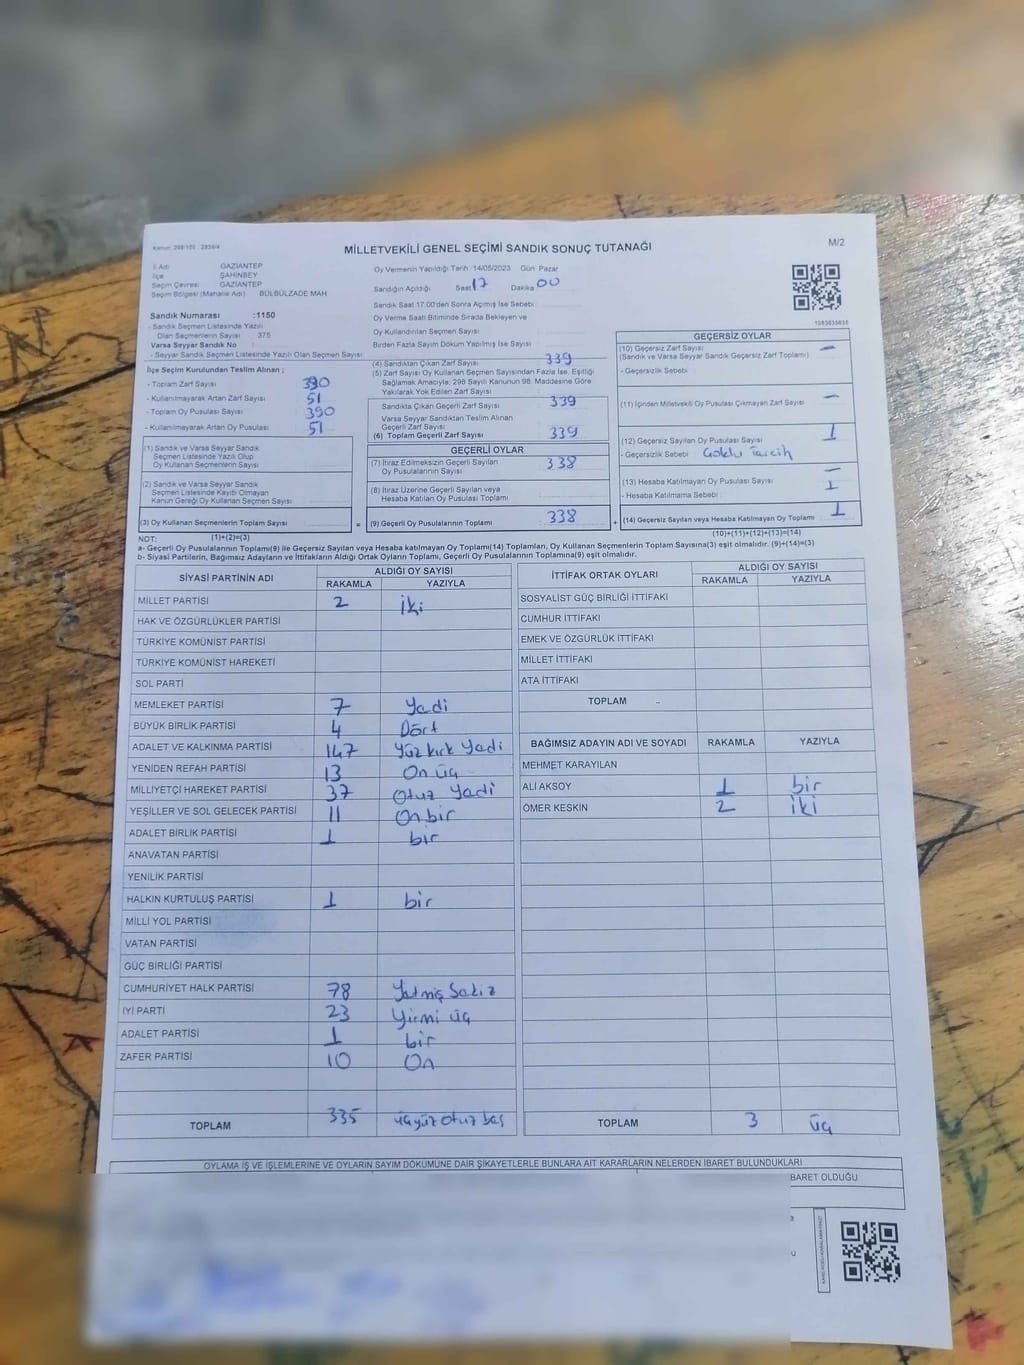 Kanun: 298/105 , 2839/4
MİLLETVEKİLİ GENEL SEÇİMİ SANDIK SONUÇ TUTANAĞI
M/2
İl Adı GAZİANTEP
İlçe ŞAHİNBEY
Seçim Çevresi GAZİANTEP
Seçim Bölgesi (Mahalle Adı) BÜLBÜLZADE MAH.
Oy Vermenin Yapıldığı Tarih: 14/05/2023 Gün: Pazar
Sandığın Açıldığı Saat 17 Dakika 00
Sandık Saat 17:00'den Sonra Açılmış İse Sebebi
Oy Verme Saati Bitiminde Sırada Bekleyen ve
Oy Kullandırılan Seçmen Sayısı
Birden Fazla Sayım Döküm Yapılmış İse Sayısı
Sandık Numarası :1150
- Sandık Seçmen Listesinde Yazılı
Olan Seçmenlerin Sayısı : 375
Varsa Seyyar Sandık No
- Seyyar Sandık Seçmen Listesinde Yazılı Olan Seçmen Sayısı
İlçe Seçim Kurulundan Teslim Alınan ;
- Toplam Zarf Sayısı 390
- Kullanılmayarak Artan Zarf Sayısı 51
- Toplam Oy Pusulası Sayısı 390
- Kullanılmayarak Artan Oy Pusulası 51
(1) Sandık ve Varsa Seyyar Sandık
Seçmen Listesinde Yazılı Olup
Oy Kullanan Seçmenlerin Sayısı
(2) Sandık ve Varsa Seyyar Sandık
Seçmen Listesinde Kayıtlı Olmayan
Kanun Gereği Oy Kullanan Seçmen Sayısı
(3) Oy Kullanan Seçmenlerin Toplam Sayısı
(4) Sandıktan Çıkan Zarf Sayısı 339
(5) Zarf Sayısı Oy Kullanan Seçmen Sayısından Fazla İse, Eşitliği
Sağlamak Amacıyla, 298 Sayılı Kanunun 98. Maddesine Göre
Yakılarak Yok Edilen Zarf Sayısı
Sandıkta Çıkan Geçerli Zarf Sayısı 339
Varsa Seyyar Sandıktan Teslim Alınan
Geçerli Zarf Sayısı
(6) Toplam Geçerli Zarf Sayısı 339
GEÇERLİ OYLAR
(7) İtiraz Edilmeksizin Geçerli Sayılan
Oy Pusulalarının Sayısı 338
(8) İtiraz Üzerine Geçerli Sayılan veya
Hesaba Katılan Oy Pusulası Toplamı
= (9) Geçerli Oy Pusulalarının Toplamı 338 +
1083635635
GEÇERSİZ OYLAR
(10) Geçersiz Zarf Sayısı –
(Sandık ve Varsa Seyyar Sandık Geçersiz Zarf Toplamı)
- Geçersizlik Sebebi
(11) İçinden Milletvekili Oy Pusulası Çıkmayan Zarf Sayısı –
(12) Geçersiz Sayılan Oy Pusulası Sayısı 1
- Geçersizlik Sebebi Çoklu Tercih
(13) Hesaba Katılmayan Oy Pusulası Sayısı –
- Hesaba Katılmama Sebebi 1
(14) Geçersiz Sayılan veya Hesaba Katılmayan Oy Toplamı 1
NOT: (1)+(2)=(3) (10)+(11)+(12)+(13)=(14)
a- Geçerli Oy Pusulaları Toplamı(9) ile Geçersiz Sayılan veya Hesaba katılmayan Oy Toplamı(14) Toplamları, Oy Kullanan Seçmenlerin Toplam Sayısına(3) eşit olmalıdır. (9)+(14)=(3)
b- Siyasi Partilerin, Bağımsız Adayların ve İttifakların Aldığı Ortak Oyların Toplamı, Geçerli Oy Pusulalarının Toplamına(9) eşit olmalıdır.
SİYASİ PARTİNİN ADI ALDIĞI OY SAYISI
RAKAMLA YAZIYLA
MİLLET PARTİSİ 2 iki
HAK VE ÖZGÜRLÜKLER PARTİSİ
TÜRKİYE KOMÜNİST PARTİSİ
TÜRKİYE KOMÜNİST HAREKETİ
SOL PARTİ
MEMLEKET PARTİSİ 7 Yedi
BÜYÜK BİRLİK PARTİSİ 4 Dört
ADALET VE KALKINMA PARTİSİ 147 Yüz kırk Yedi
YENİDEN REFAH PARTİSİ 13 On üç
MİLLİYETÇİ HAREKET PARTİSİ 37 Otuz Yedi
YEŞİLLER VE SOL GELECEK PARTİSİ 11 On bir
ADALET BİRLİK PARTİSİ 1 bir
ANAVATAN PARTİSİ
YENİLİK PARTİSİ
HALKIN KURTULUŞ PARTİSİ 1 bir
MİLLİ YOL PARTİSİ
VATAN PARTİSİ
GÜÇ BİRLİĞİ PARTİSİ
CUMHURİYET HALK PARTİSİ 78 Yetmiş Sekiz
İYİ PARTİ 23 Yirmi üç
ADALET PARTİSİ 1 bir
ZAFER PARTİSİ 10 On
TOPLAM 335 üçyüz otuz beş
İTTİFAK ORTAK OYLARI ALDIĞI OY SAYISI
RAKAMLA YAZIYLA
SOSYALİST GÜÇ BİRLİĞİ İTTİFAKI
CUMHUR İTTİFAKI
EMEK VE ÖZGÜRLÜK İTTİFAKI
MİLLET İTTİFAKI
ATA İTTİFAKI
TOPLAM
BAĞIMSIZ ADAYIN ADI VE SOYADI RAKAMLA YAZIYLA
MEHMET KARAYILAN
ALİ AKSOY 1 bir
ÖMER KESKİN 2 iki
TOPLAM 3 üç
OYLAMA İŞ VE İŞLEMLERİNE VE OYLARIN SAYIM DÖKÜMÜNE DAİR ŞİKAYETLERLE BUNLARA AİT KARARLARIN NELERDEN İBARET BULUNDUKLARI
BARET OLDUĞU